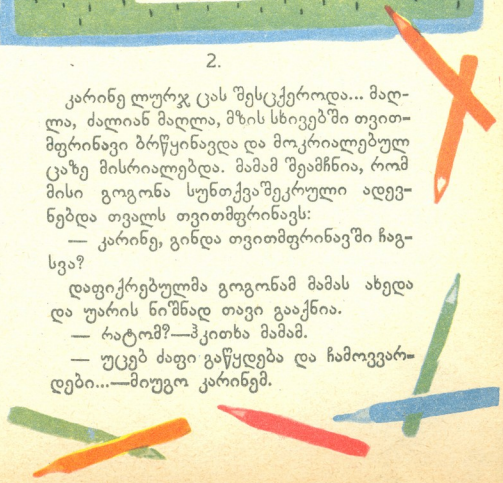 2.
კარინე ლურჯ ცას შესცქეროდა... მაღ-
ლა, ძალიან მაღლა, მზის სხივებში თვით-
მფრინავი ბრწყინავდა და მოკრიალებულ
ცაზე მისრიალებდა. მამამ შეამჩნია, რომ
მისი გოგონა სუნთქვაშეკრული ადევ-
ნებდა თვალს თვითმფრინავს:
— კარინე, გინდა თვითმფრინავში ჩაგ-
სვა?
დაფიქრებულმა გოგონამ მამას ახედა
და უარის ნიშნად თავი გააქნია.
— რატომ?—ჰკითხა მამამ.
— უცებ ძაფი გაწყდება და ჩამოვვარ-
დები...—მიუგო კარინემ.